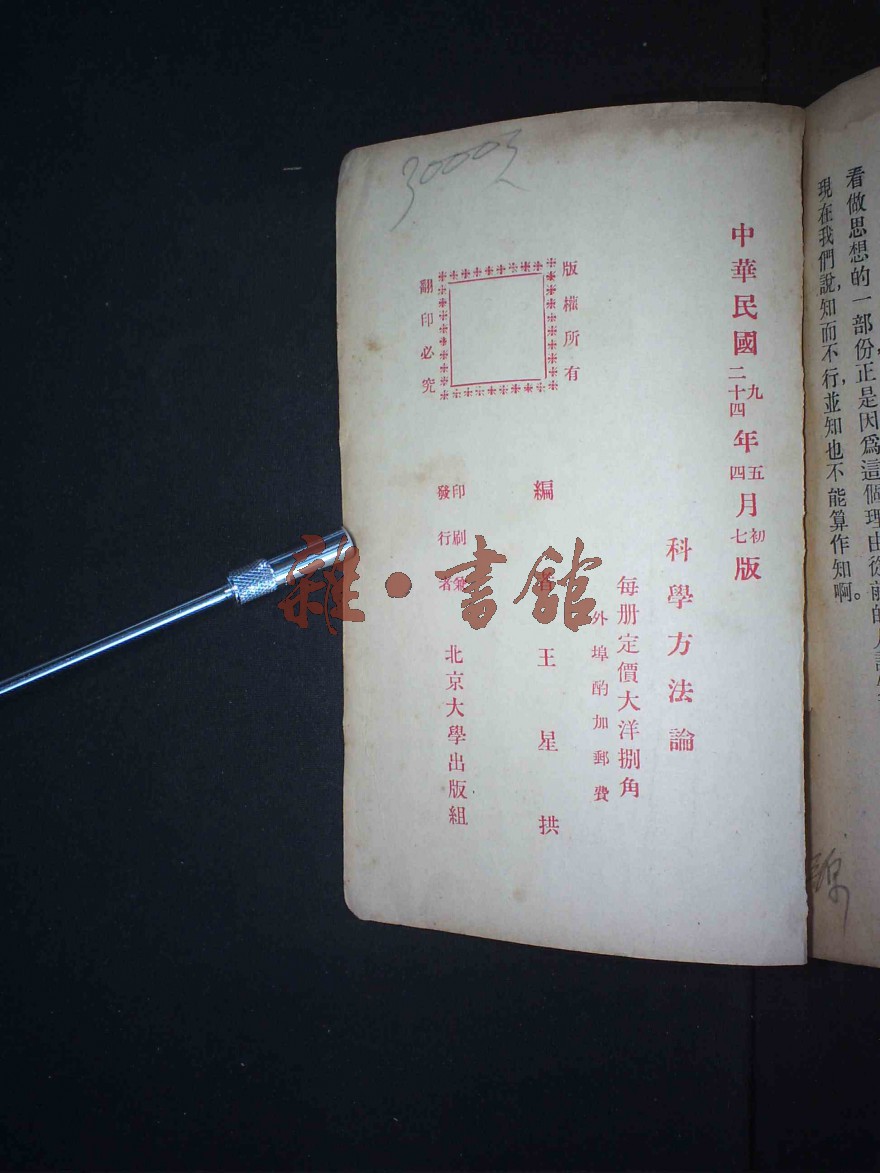 看做思想的一部份正是因爲這個理由從前的
現在我們說,知而不行,並知也不能算作知啊。
中華民國 九 二十四 年 五 四 月 初 七 版
科學方法論
每册定價大洋捌角
外埠酌加郵費
編者 王星拱
印刷兼
發行者
北京大學出版組
版權所有
翻印必究
30003
雜·書館